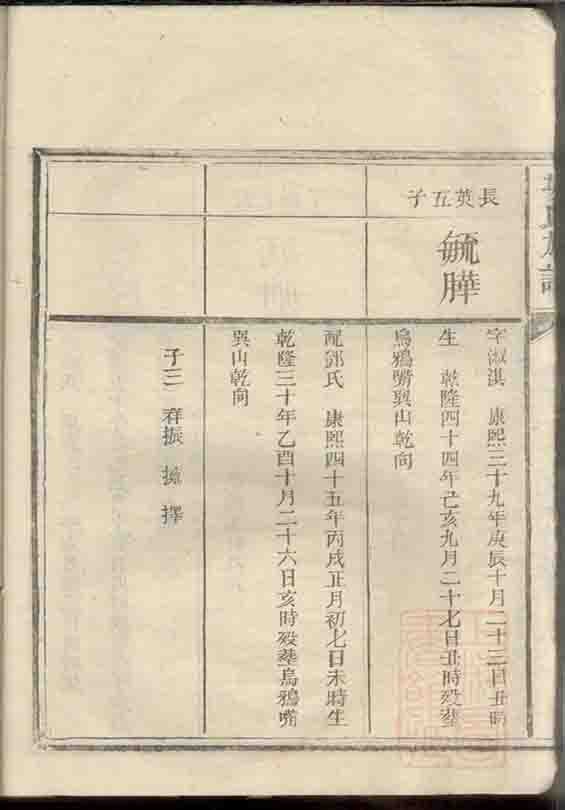 長英五子
毓曄
字淑淇 康熙三十九年庚辰十月二十三日丑時
生 乾隆四十四年己亥九月二十七日丑時殁塟
烏鴉嘴巽山乾向
配鄧氏 康熙四十五年丙戌正月初七日未時生
乾隆三十年乙酉十月二十六日亥時殁塟烏鴉嘴
巽山乾向
子三 存振 擇